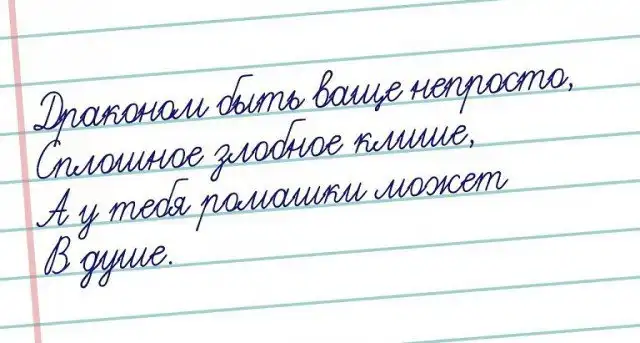 Драконом быть ваще непросто,
Сплошное злобное клише,
А у тебя ромашки может
В душе.